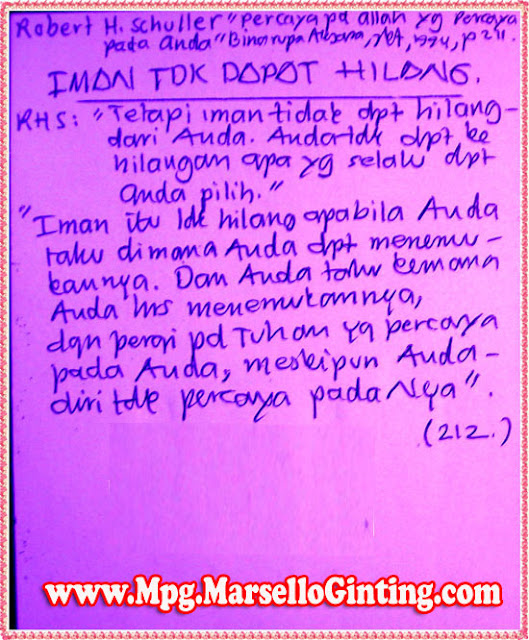 Robert H. Schuller "Percaya pd allah yg percaya
pada anda" Binarupa Aksara, Jkt, 1994, p 211.
IMAN TDK DAPAT HILANG.
RHS: "Tetapi iman tidak dpt hilang-
dari Anda. Anda tdk dpt ke
hilangan apa yg selalu dpt
anda pilih."
"Iman itu tdk hilang apabila Anda
tahu dimana Anda dpt menemu-
kannya. Dan Anda tahu kemana
Anda hrs menemukannya,
dgn pergi pd Tuhan yg percaya
pada Anda, meskipun Anda-
diri tdk percaya padaNya".
(212.)
www.Mpg.MarselloGinting.com